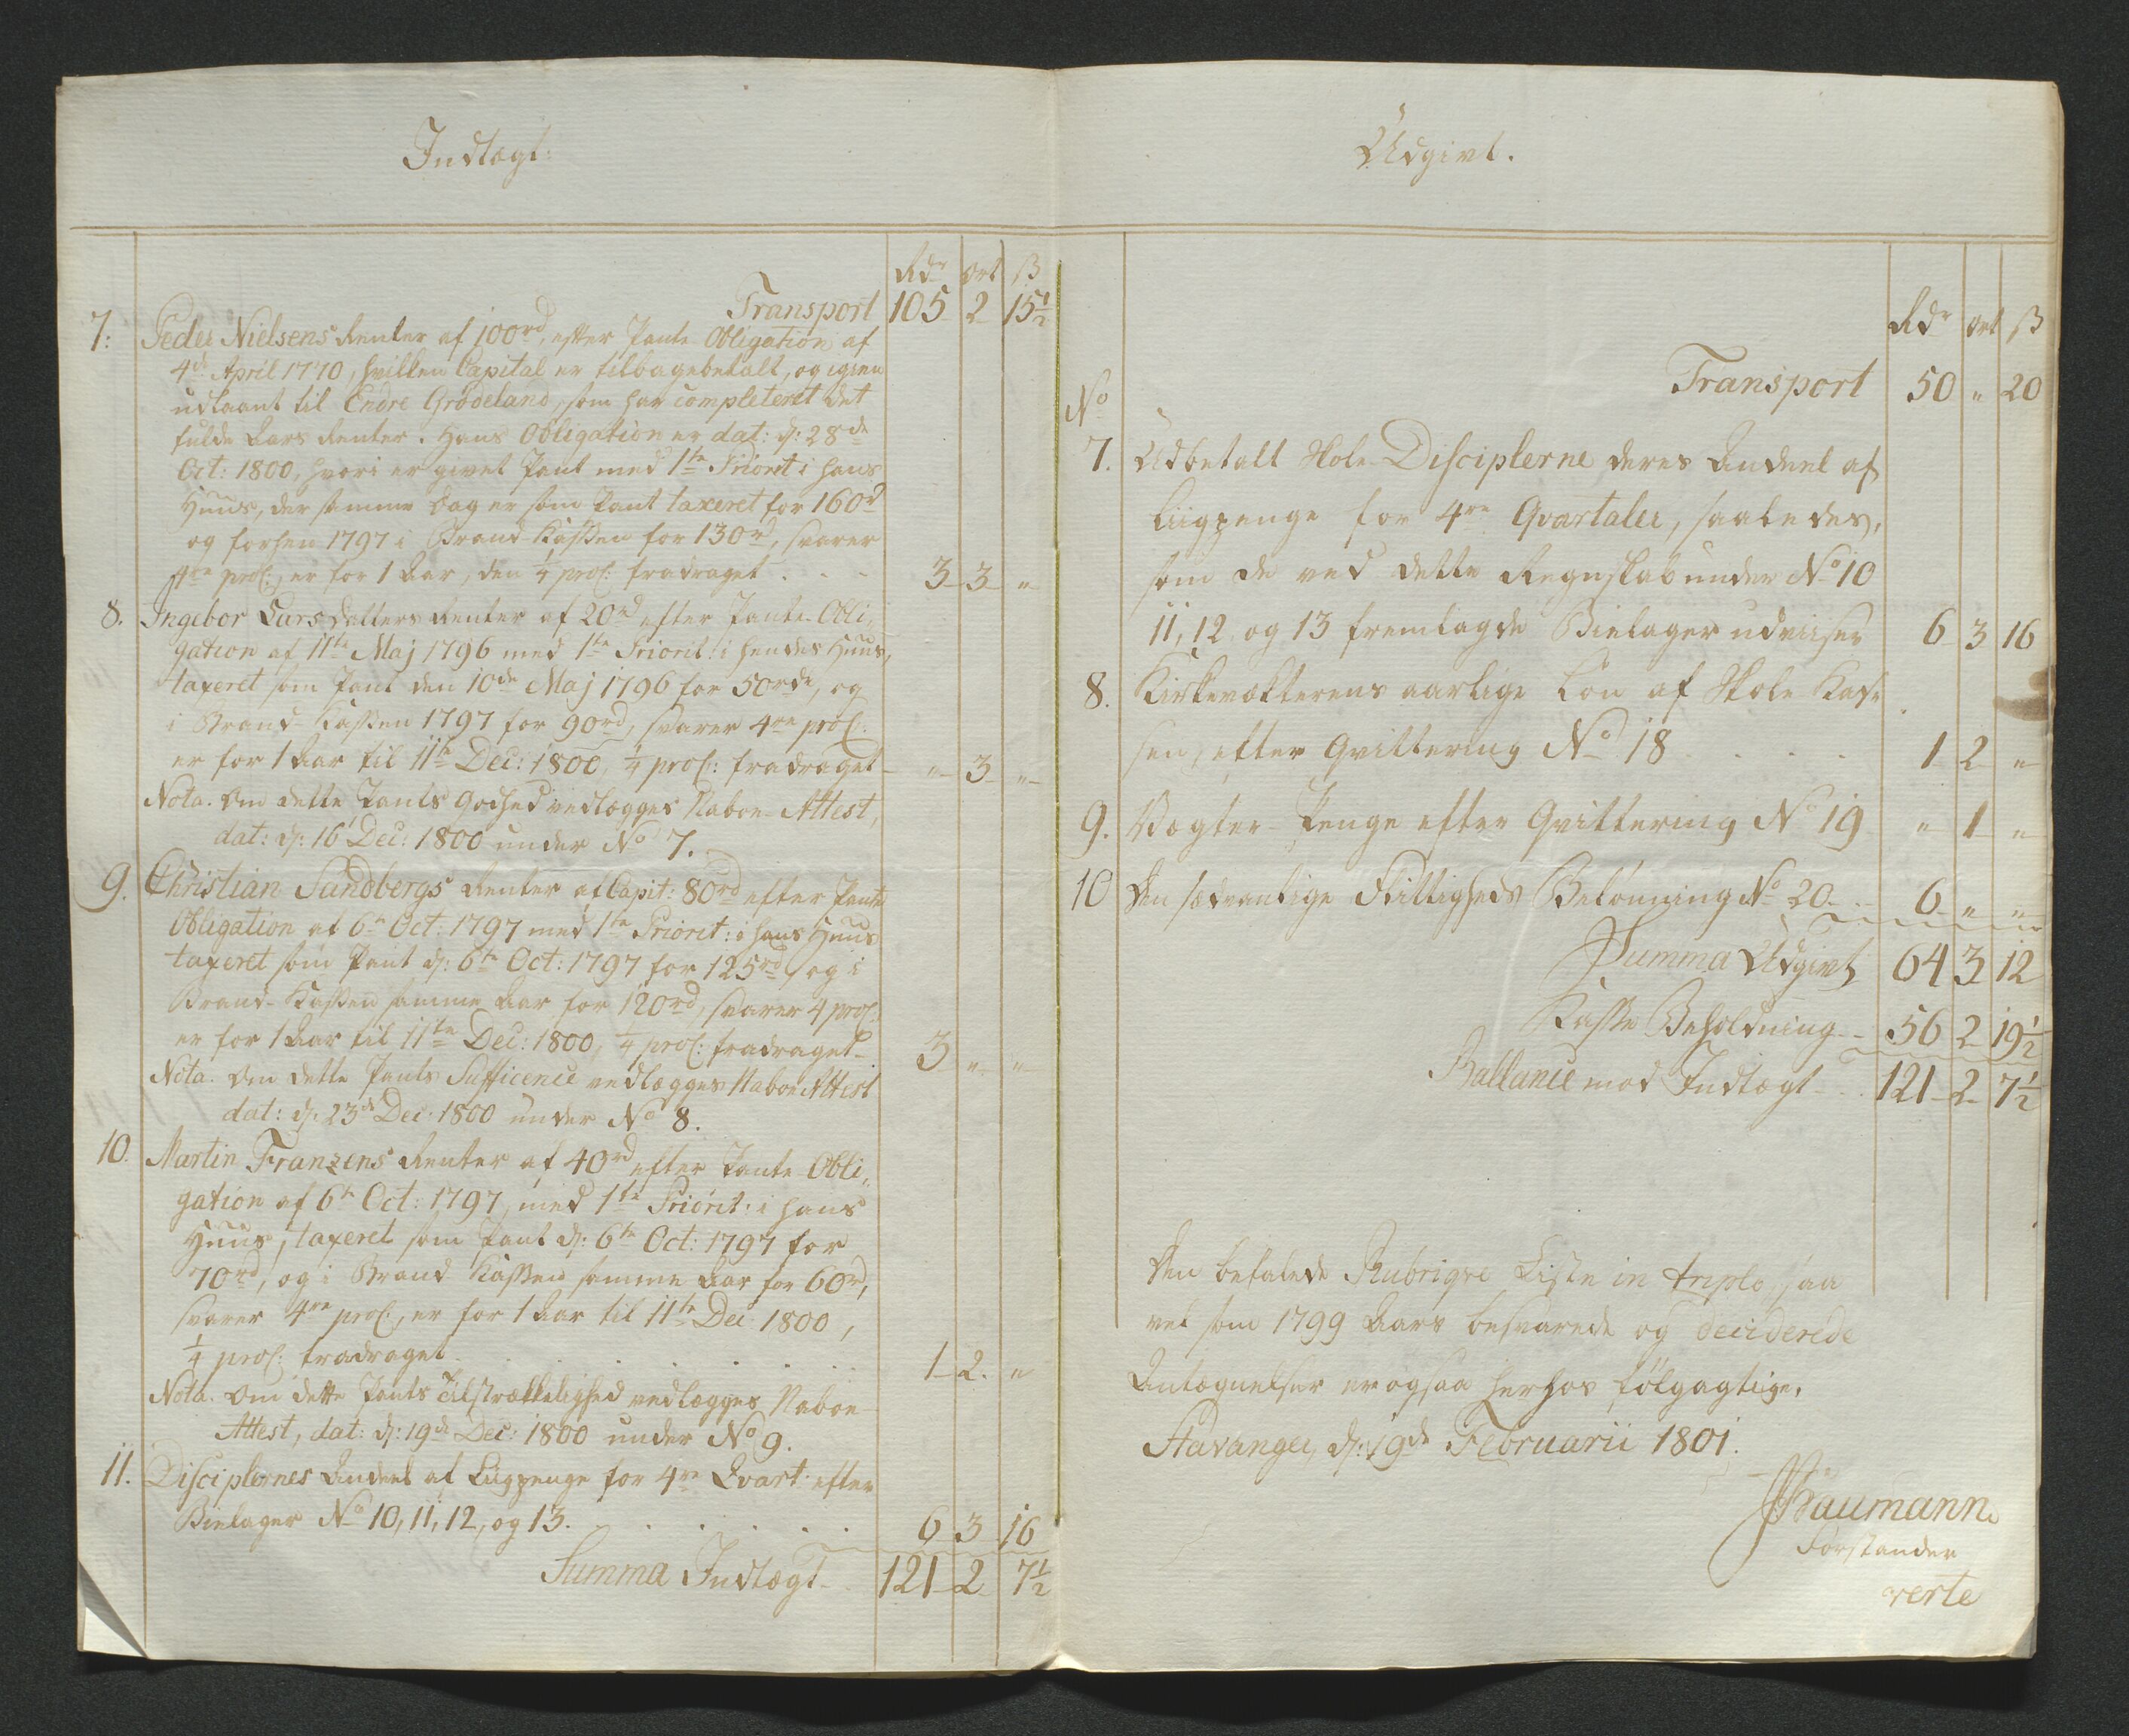 Indtægt:
Rdr Ort ß
Transport 105 2 15½
7: Peder Nielsens Renter af 100rd, efter Pante Obligation af
4de April 1770, hvilken Capital er tilbagebetalt, og igien
udlaant til Endre Grödeland, som har completeret det
fulde Aars Renter. Hans Obligation er dat: d: 28de
Oct: 1800, hvori er givet Pant med 1te Priorit i hans
Huus, der samme Dag er som Pant taxeret for 160rd
og forhen 1797 i Brand-Kassen for 130rd, svarer
4re proC:, er for 1 Aar, den ¼ proC: fradraget . - - 3 3 "
8. Ingebor Larsdatters Renter af 20rd efter Pante-Obli,,
gation af 11te Maj 1796 med 1te Priorit: i hendes Huus,
taxeret som Pant den 10de Maj 1796 for 50rdr, og
i Brand-Kassen 1797 for 90rd, svarer 4re proC:
er for 1 Aar til 11te Dec: 1800, ¼ proC: fradraget - " 3 "
Nota. Om dette Pants Godhed vedlægges Naboe-Attest,
dat: d: 16 Dec: 1800 under No 7.
9. Christian Sandbergs Renter af Capit: 80rd efter Pante
Obligation af 6te Oct: 1797 med 1te Priorit: i hans Huus
taxeret som Pant d: 6te Oct: 1797 for 125rd, og i
Brand-Kassen samme Aar for 120rd, svarer 4 proC:
er for 1 Aar til 11te Dec: 1800, ¼ proC: fradraget - 3 " "
Nota. Om dette Pants Sufficence vedlægges Naboe Attest
dat: d: 23de Dec: 1800 under No 8.
10. Martin Franzens Renter af 40rd efter Pante-Obli,,
gation af 6te Oct: 1797, med 1te Priorit: i hans
Huus, taxeret som Pant d: 6te Oct: 1797 for
70rd, og i Brand Kassen samme Aar for 60rd,
svarer 4re proC:, er for 1 Aar til 11te Dec 1800,
¼ proC: fradraget . . . . . . 1 2. "
Nota. Om dette Pants Tilstrækkelighed vedlægges Naboe-
Attest, dat: d: 19de Dec: 1800 under No 9.
11. Disciplernes Andeel af Liigpenge for 4re Qvart: efter
Bielager No 10, 11, 12, og 13. . . . . . 6 3 16
Summa Indtægt - 121 2 7½
Udgivt.
Rdr Ort ß
Transport 50 " 20
No
7. Udbetalt Skole-Disciplerne deres Andeel af
Liigpenge for 4re Qvartaler, saaledes,
som de ved dette Regnskab under No 10
11, 12, og 13 fremlagde Bielager udviiser 6 3 16
8. Kirkevækterens aarlige Lön af Skole Kas-
sen, efter Qvittering No 18 . . . 1 2 "
9. Vægter-Penge efter Qvittering No 19 " 1 "
10 Den sædvanlige Flittigheds Belönning No 20 - . 6 " "
Summa Udgivt 64 3 12
Kasse Beholdning - 56 2 19½
Ballance mod Indtægt - . 121 2 7½
Den befalede Rubriqve Liste in triplo, saa
vel som 1799 Aars besvarede og deciderede
Antægnelser er ogsaa herhos fölgagtige.
Stavanger, d: 19de Februarii 1801.
Baumann
Forstander
verte